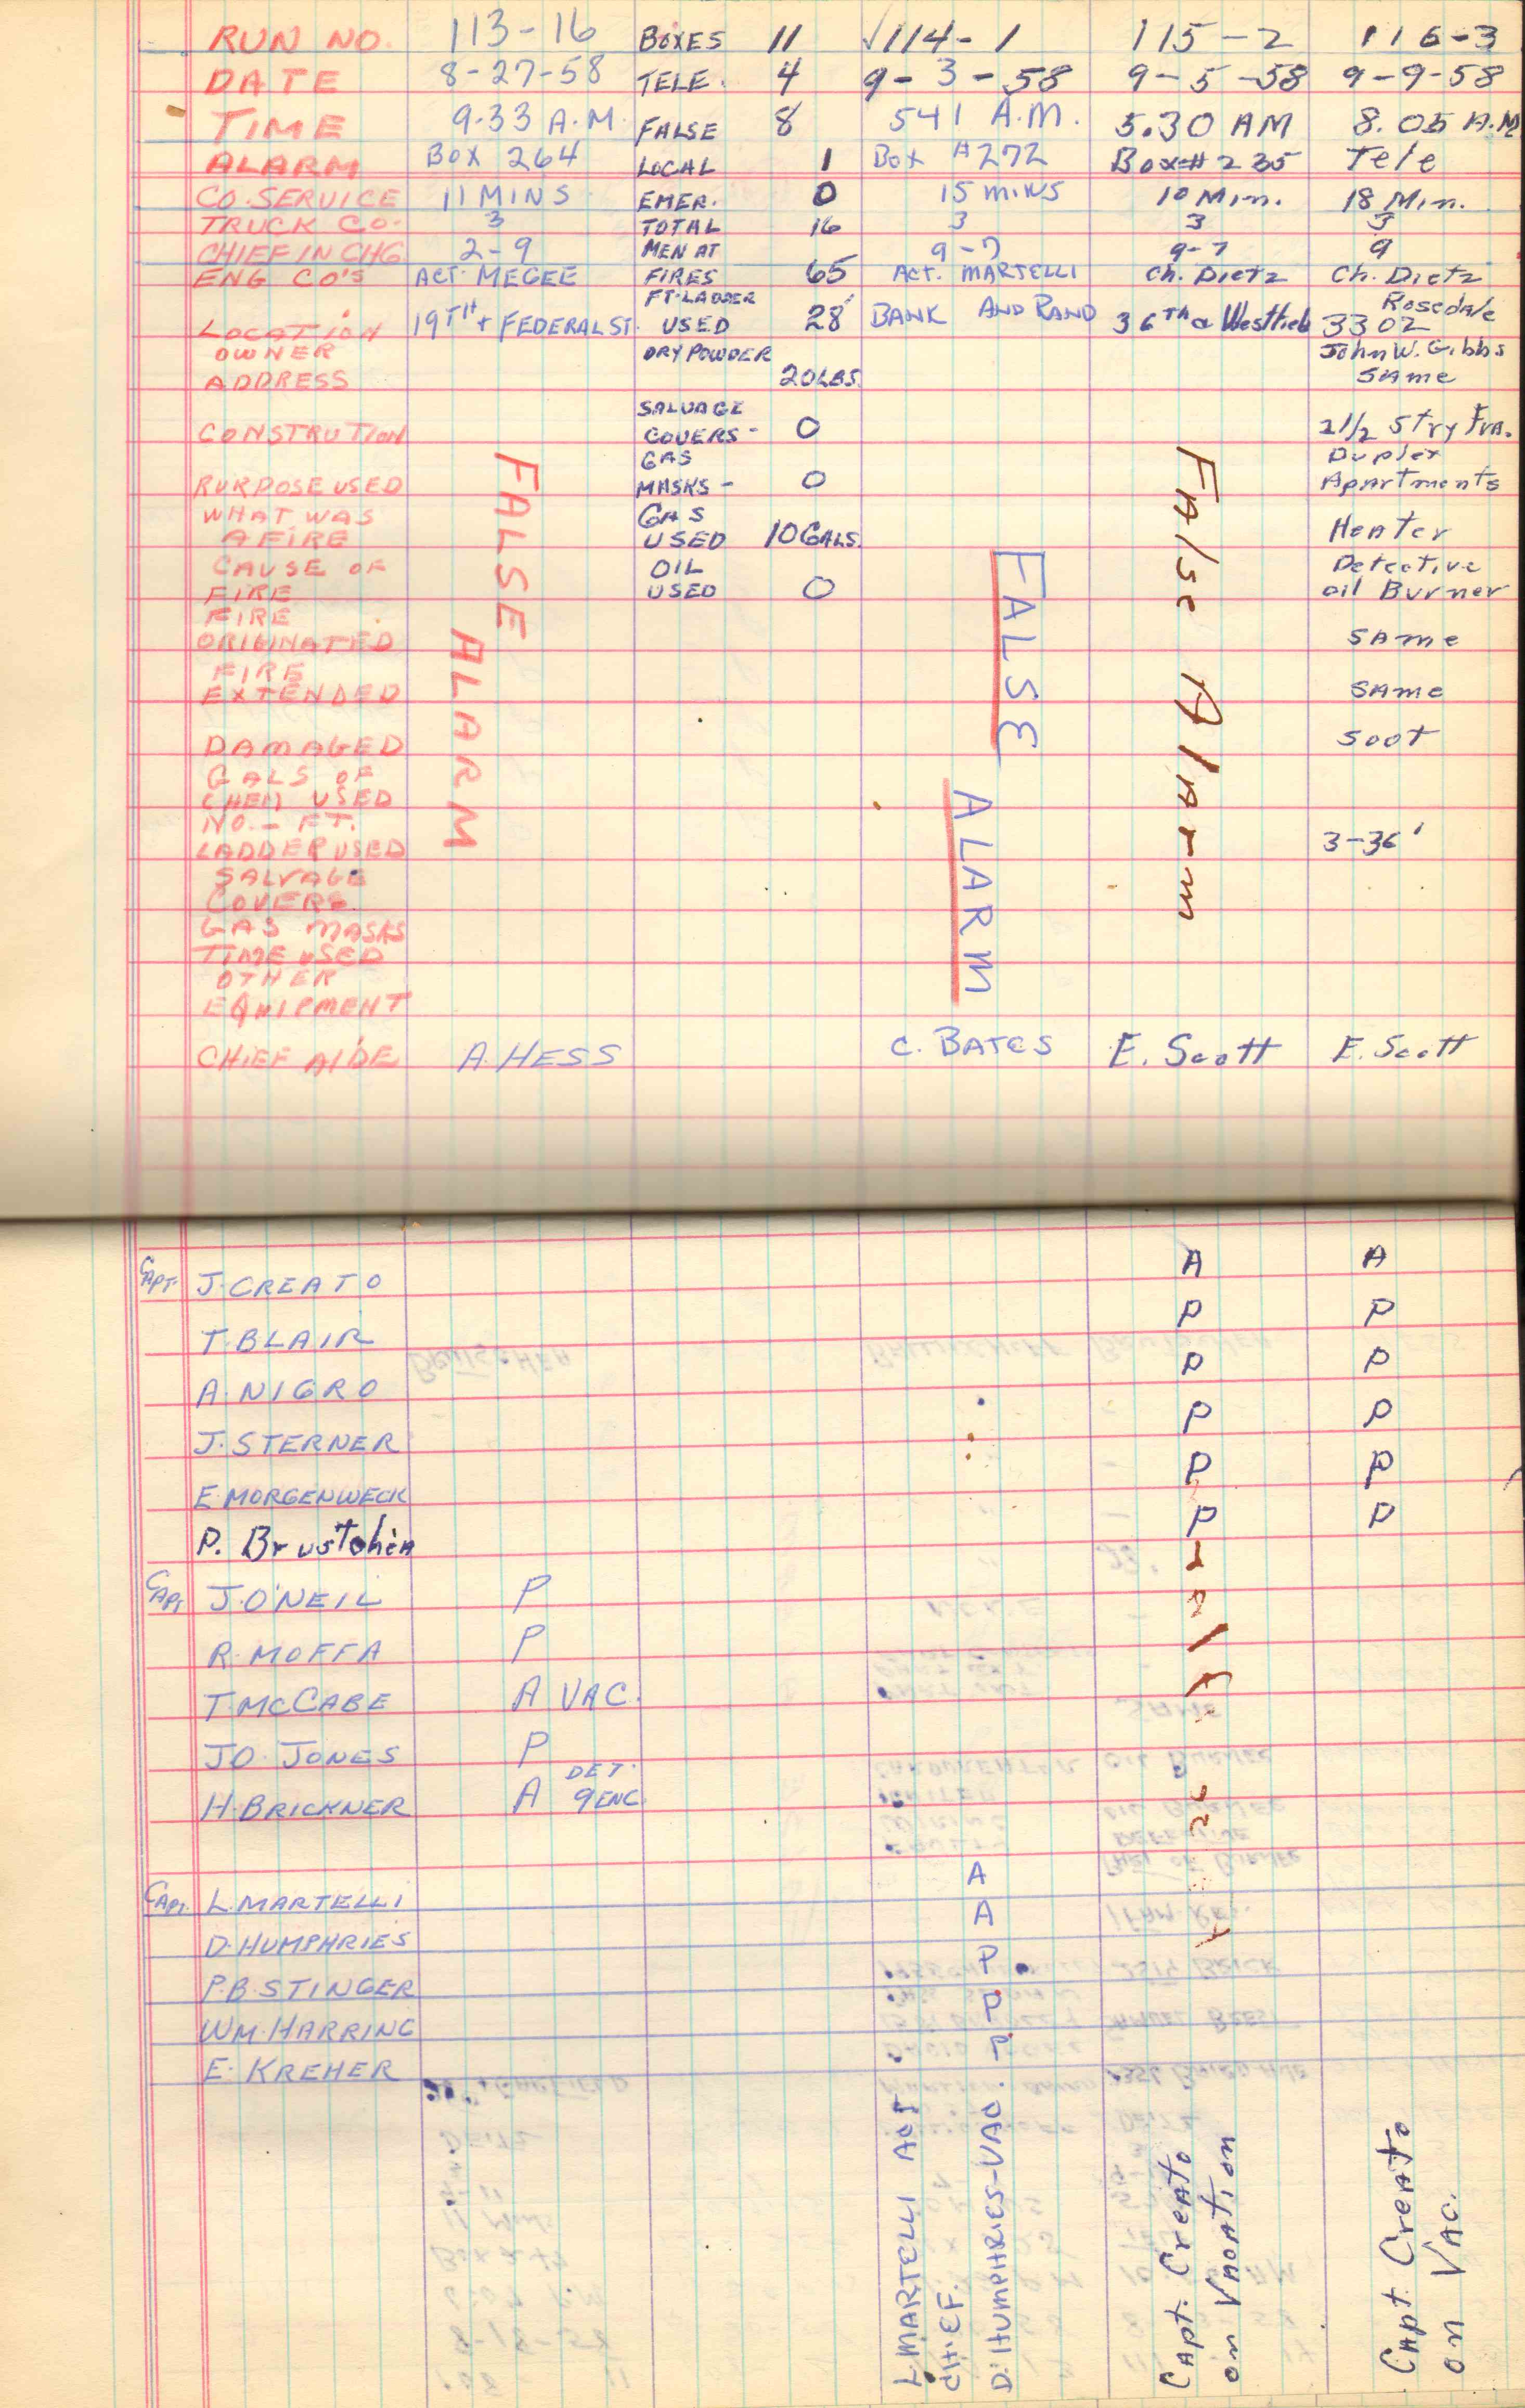 RUN NO. 113-16 BOXES 11 √114-1 115-2 116-3
DATE 8-27-58 TELE. 4 9-3-58 9-5-58 9-9-58
TIME 9.33 A.M. FALSE 8 541 A.M. 5.30 AM 8.05 A.M
ALARM BOX 264 LOCAL 1 BOX #272 Box# 235 Tele
CO. SERVICE 11 MINS. EMER. 0 15 MINS 10 Min. 18 Min.
TRUCK CO. 3 TOTAL 16 3 3 3
CHIEF IN CHG 2-9 MEN AT 9-7 9-7 9
ENG CO'S ACT. MEGEE FIRES 65 ACT. MARTELLI Ch. Dietz Ch. Dietz
FT. LADDER Rosedale
LOCATION 19TH + FEDERAL ST. USED 28' BANK AND RAND 36th & Westfield 3302
OWNER DRY POWDER John W. Gibbs
ADDRESS 20 LBS. SAme
SALVAGE
CONSTRUTION COVERS - 0 2 1/2 Stry Fra.
GAS Duplex
RURPOSE USED MASKS - 0 Apartments
WHAT WAS GAS
A FIRE USED 10 GALS. Heater
CAUSE OF OIL Detective
FIRE USED 0 oil Burner
FIRE
ORIGINATED SAme
FIRE
EXTENDED SAme
DAMAGED Soot
GALS OF
CHEM USED
NO. - FT.
LADDER USED 3-36'
SALVAGE
COVERS
GAS MASKS
TIME USED
OTHER
EQUIPMENT
FALSE ALARM
FALSE ALARM
False Alarm
CHIEF AIDE A. HESS C. BATES E. Scott E. Scott
CAPT. J. CREATO A A
T. BLAIR P P
A. NIGRO P P
J. STERNER P P
E. MORGENWECK P P
P. Brustohien P P
CAPT J. O'NEIL P
R. MOFFA P
T. McCABE A VAC.
JO. JONES P
H. BRICKNER A DET. 9 ENG.
CAPT. L. MARTELLI A
D. HUMPHRIES A
P.B. STINGER P
WM. HARRING P
E. KREHER P
L. MARTELLI ACT
CHIEF.
D. HUMPHRIES-VAC.
Capt. Creato
on VAcAtion
Capt. Creato
on VAc.